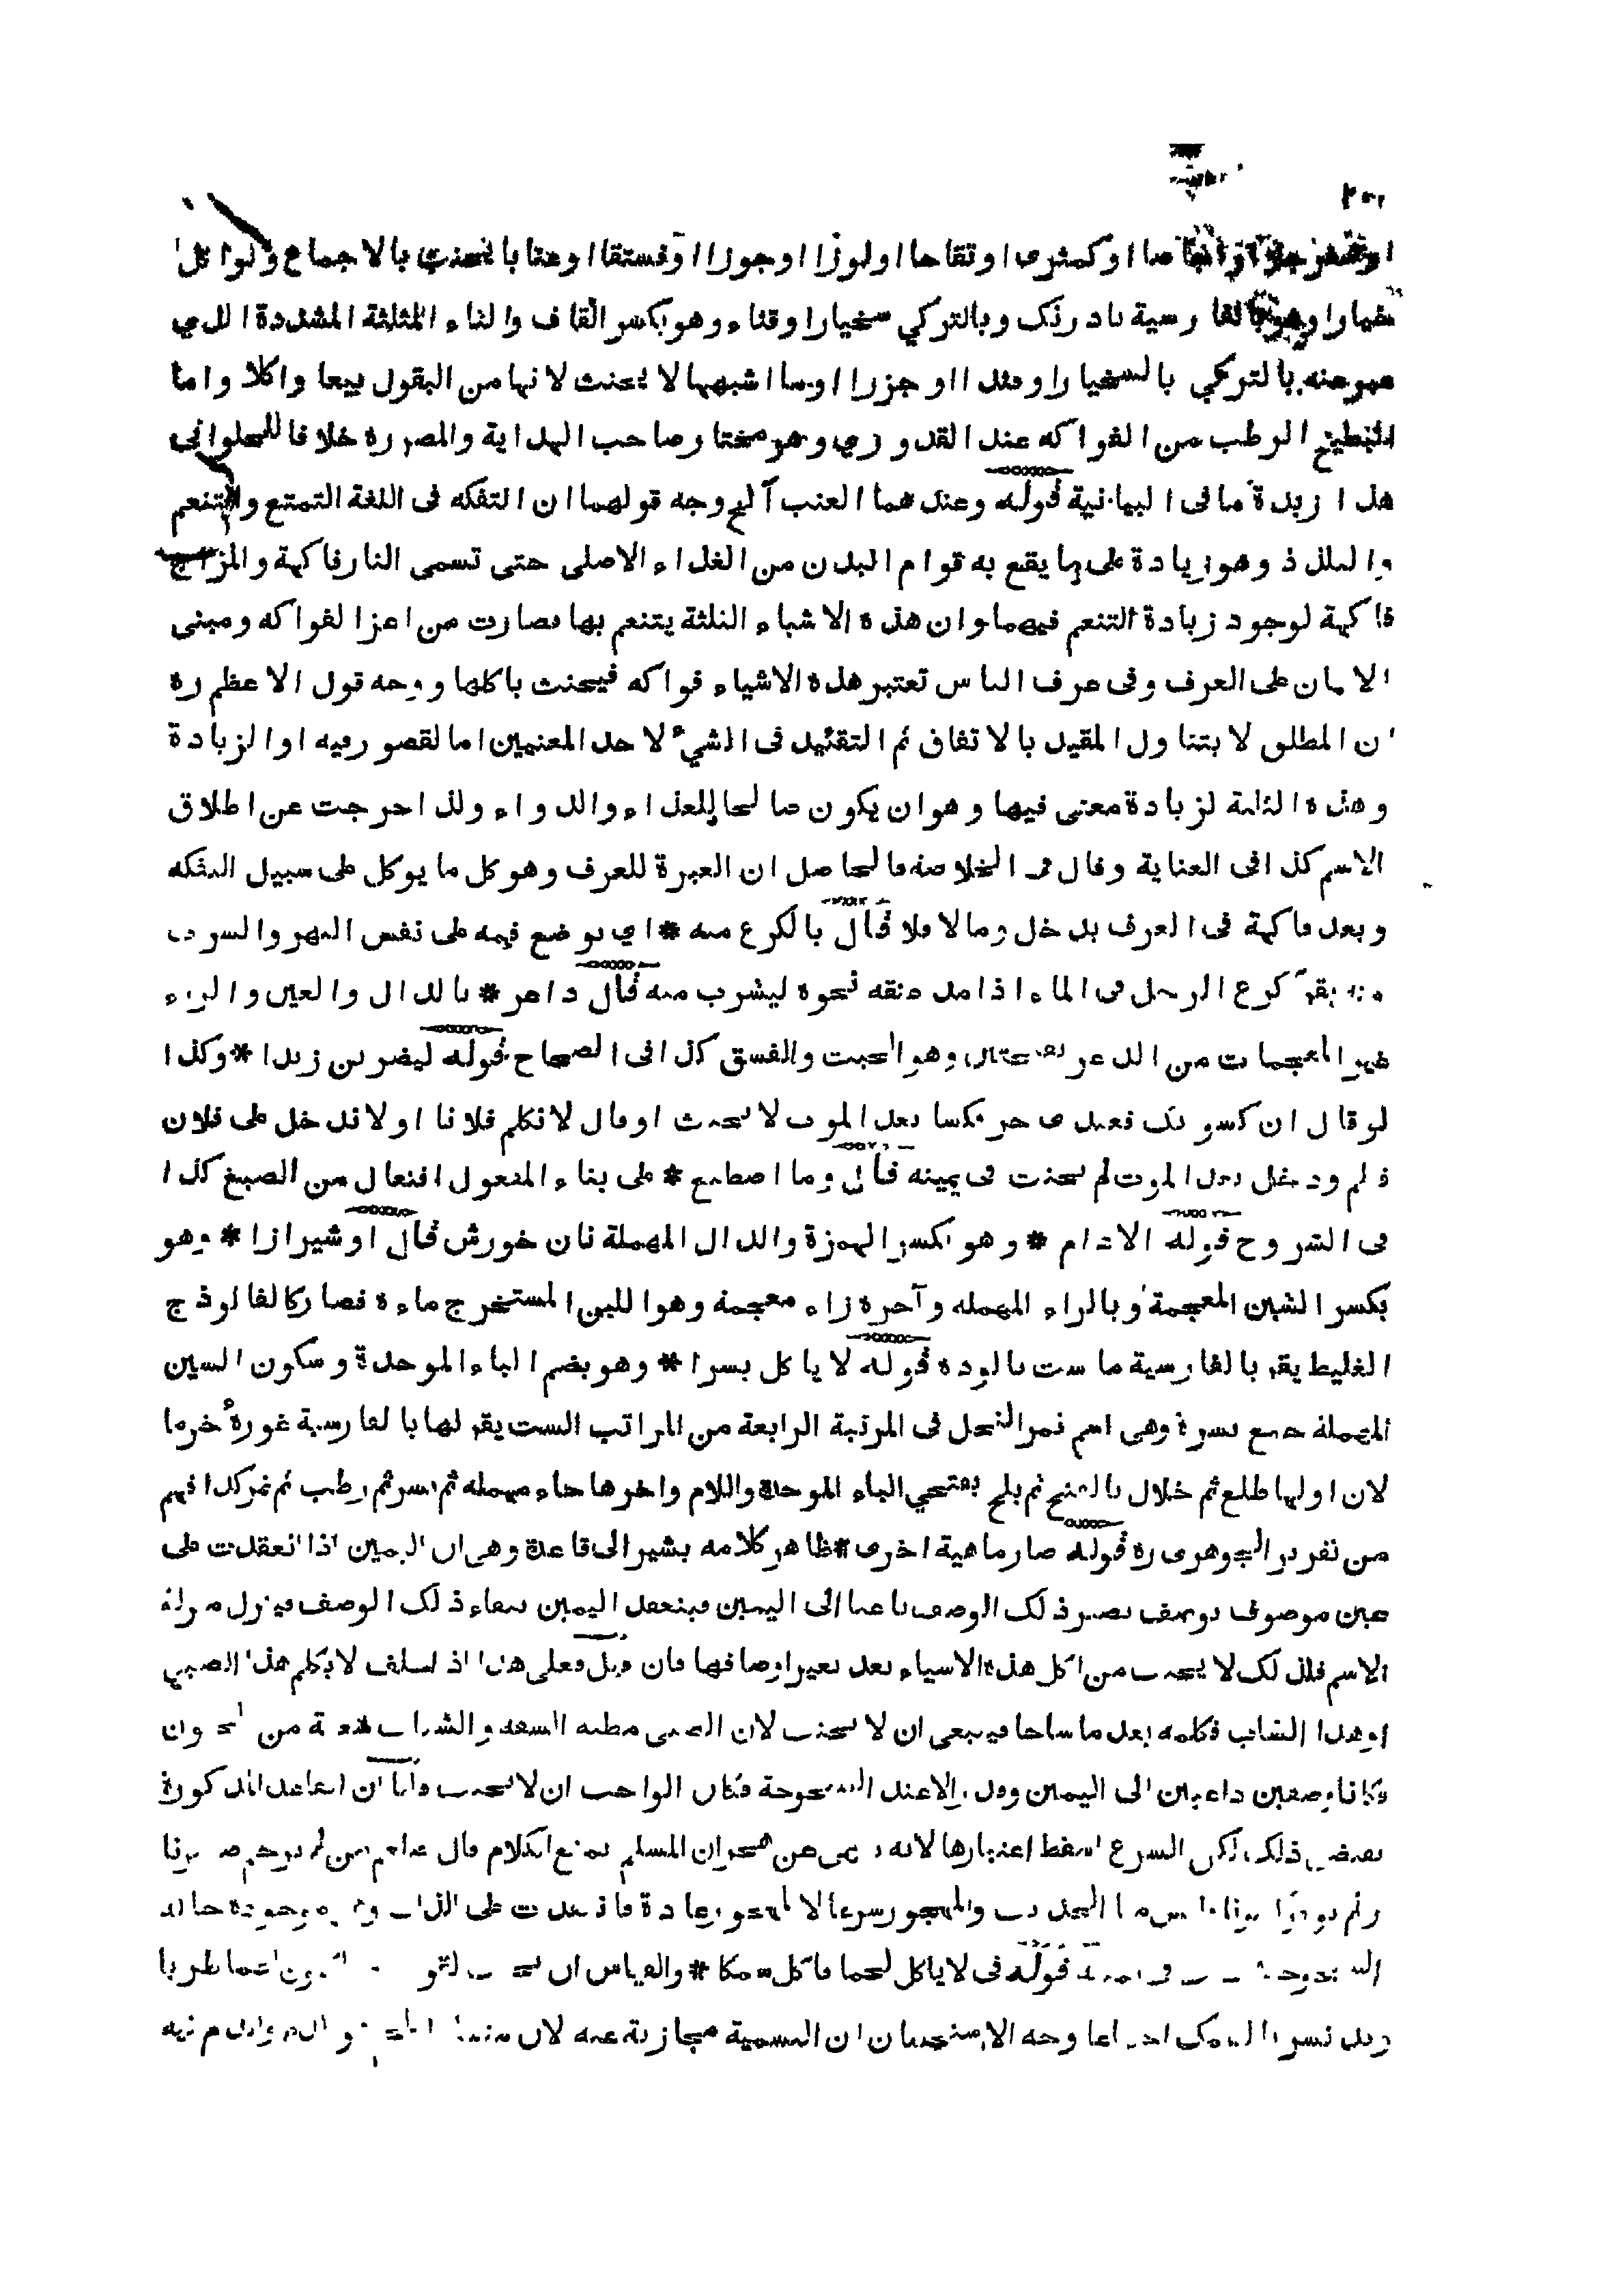 صا او كمثرى او تفاحا او لوزا او جوزا او فستقا او عنابا يحنث بالاجماع ولو اكل
خيارا وهو بالفارسية بادرنك وبالتركي سخيار او قثاء وهو بكسر القاف والثاء المثلثة المشددة الذي
بالتركي بالسخيار او جزرا او ما اشبهها لا يحنث لانها من البقول بيعا واكلا واما
البطيخ الرطب من الفواكه عند القدوري وهو مختار صاحب الهداية والمصرره خلافا للحلوانى
هذا زبدة ما فى البيانية قوله وعندهما العنب آلخ وجه قولهما ان التفكه فى اللغة التمتع والتنعم
والتلذذ وهو زيادة على ما يقع به قوام البدن من الغذاء الاصلى حتى تسمى النار فاكهة والمزاح
فاكهة لوجود زيادة التنعم فيهما وان هذه الاشياء الثلثة يتنعم بها فصارت من اعز الفواكه ومبنى
الايمان على العرف وفى عرف الناس تعتبر هذه الاشياء فواكه فيحنث باكلها ووجه قول الاعظم ره
ان المطلق لا يتناول المقيد بالاتفاق ثم التقئيد فى الشيء لاحد المعنيين اما لقصور فيه او الزيادة
وهذه الثلثة لزيادة معنى فيها وهو ان يكون صالحا للغذاء والدواء ولذا خرجت عن اطلاق
الاسم كذا فى العناية وقال فى الخلاصه فالحاصل ان العبرة للعرف وهو كل ما يوكل على سبيل التفكه
ويعد فاكهة فى العرف يدخل وما لا فلا قال بالكرع منه * اي بوضع فيمه على نفس النهر والشرب
منه يقم كرع الرجل فى الماء اذا مد عنقه نحوه ليشرب منه قال داعر * بالدال والعين والراء
غير المعجمات من الدعر بفتحتين وهو الخبث والفسق كذا فى الصحاح قوله ليضربن زيدا * وكذا
لو قال ان كسوتك فعبدى حر فكسا بعد الموت لا يحنث او قال لا تكلم فلانا او لا تدخل على فلان
فلم ودخل بعد الموت لم يحنث فى يمينه قال وما اصطبغ * على بناء المفعول افتعال من الصبغ كذا
فى الشروح قوله الادام * وهو بكسر الهمزة والدال المهملة نان خورش قال او شيرازا * وهو
بكسر الشين المعجمة وبالراء المهمله وآخره زاء معجمة وهو اللبن المستخرج ماءه فصار كالفالوذج
الغليظ يقم بالفارسية ماست پالوده قوله لا ياكل بسرا * وهو بضم الباء الموحدة وسكون السين
المهملة جمع بسرة وهى اسم ثمر النخل فى المرتبة الرابعة من المراتب الست يقم لها بالفارسية غورهٔ خرما
لان اولها طلع ثم خلال بالفتح ثم بلح بفتحي الباء الموحدة واللام واخرها حاء مهمله ثم بسر ثم رطب ثم تمر كذا فهم
من تقرير الجوهرى ره قوله صار ماهية اخرى * ظاهر كلامه يشير الى قاعدة وهى ان اليمين اذا انعقدت على
عين موصوف بوصف يصير ذلك الوصف باعثا الى اليمين فينعقد اليمين ببقاء ذلك الوصف فينزل منزلة
الاسم فلذلك لا يحنث من اكل هذه الاشياء بعد تغير اوصافها فان قيل فعلى هذا اذ احلف لا يكلم هذا الصبي
او هذا الشاب فكلمه بعد ما شاخا فينبغى ان لا يحنث لان الصبى مظنه السفه والشباب شعبة من الجنون
فكانا وصفين داعيين الى اليمين وقد زالا عند الشيخوخة فكان الواجب ان لا يحنث قلنا ان القاعدة المذكورة
يقتضى ذلك لكن الشرع اسقط اعتبارها لانه نهى عن هجران المسلم بمنع الكلام قال عليه من لم يرحم صغيرنا
ولم يوقر كبيرنا فليس منا الحديث والمهجور شرعا كالمهجور عادة فانعقدت على الذات وهى موجودة حالة
الشيخوخة قوله فى لا ياكل لحما فاكل سمكا * والقياس ان يحنث لحما طريا
السمك وجه الاستحسان ان التسمية مجازية